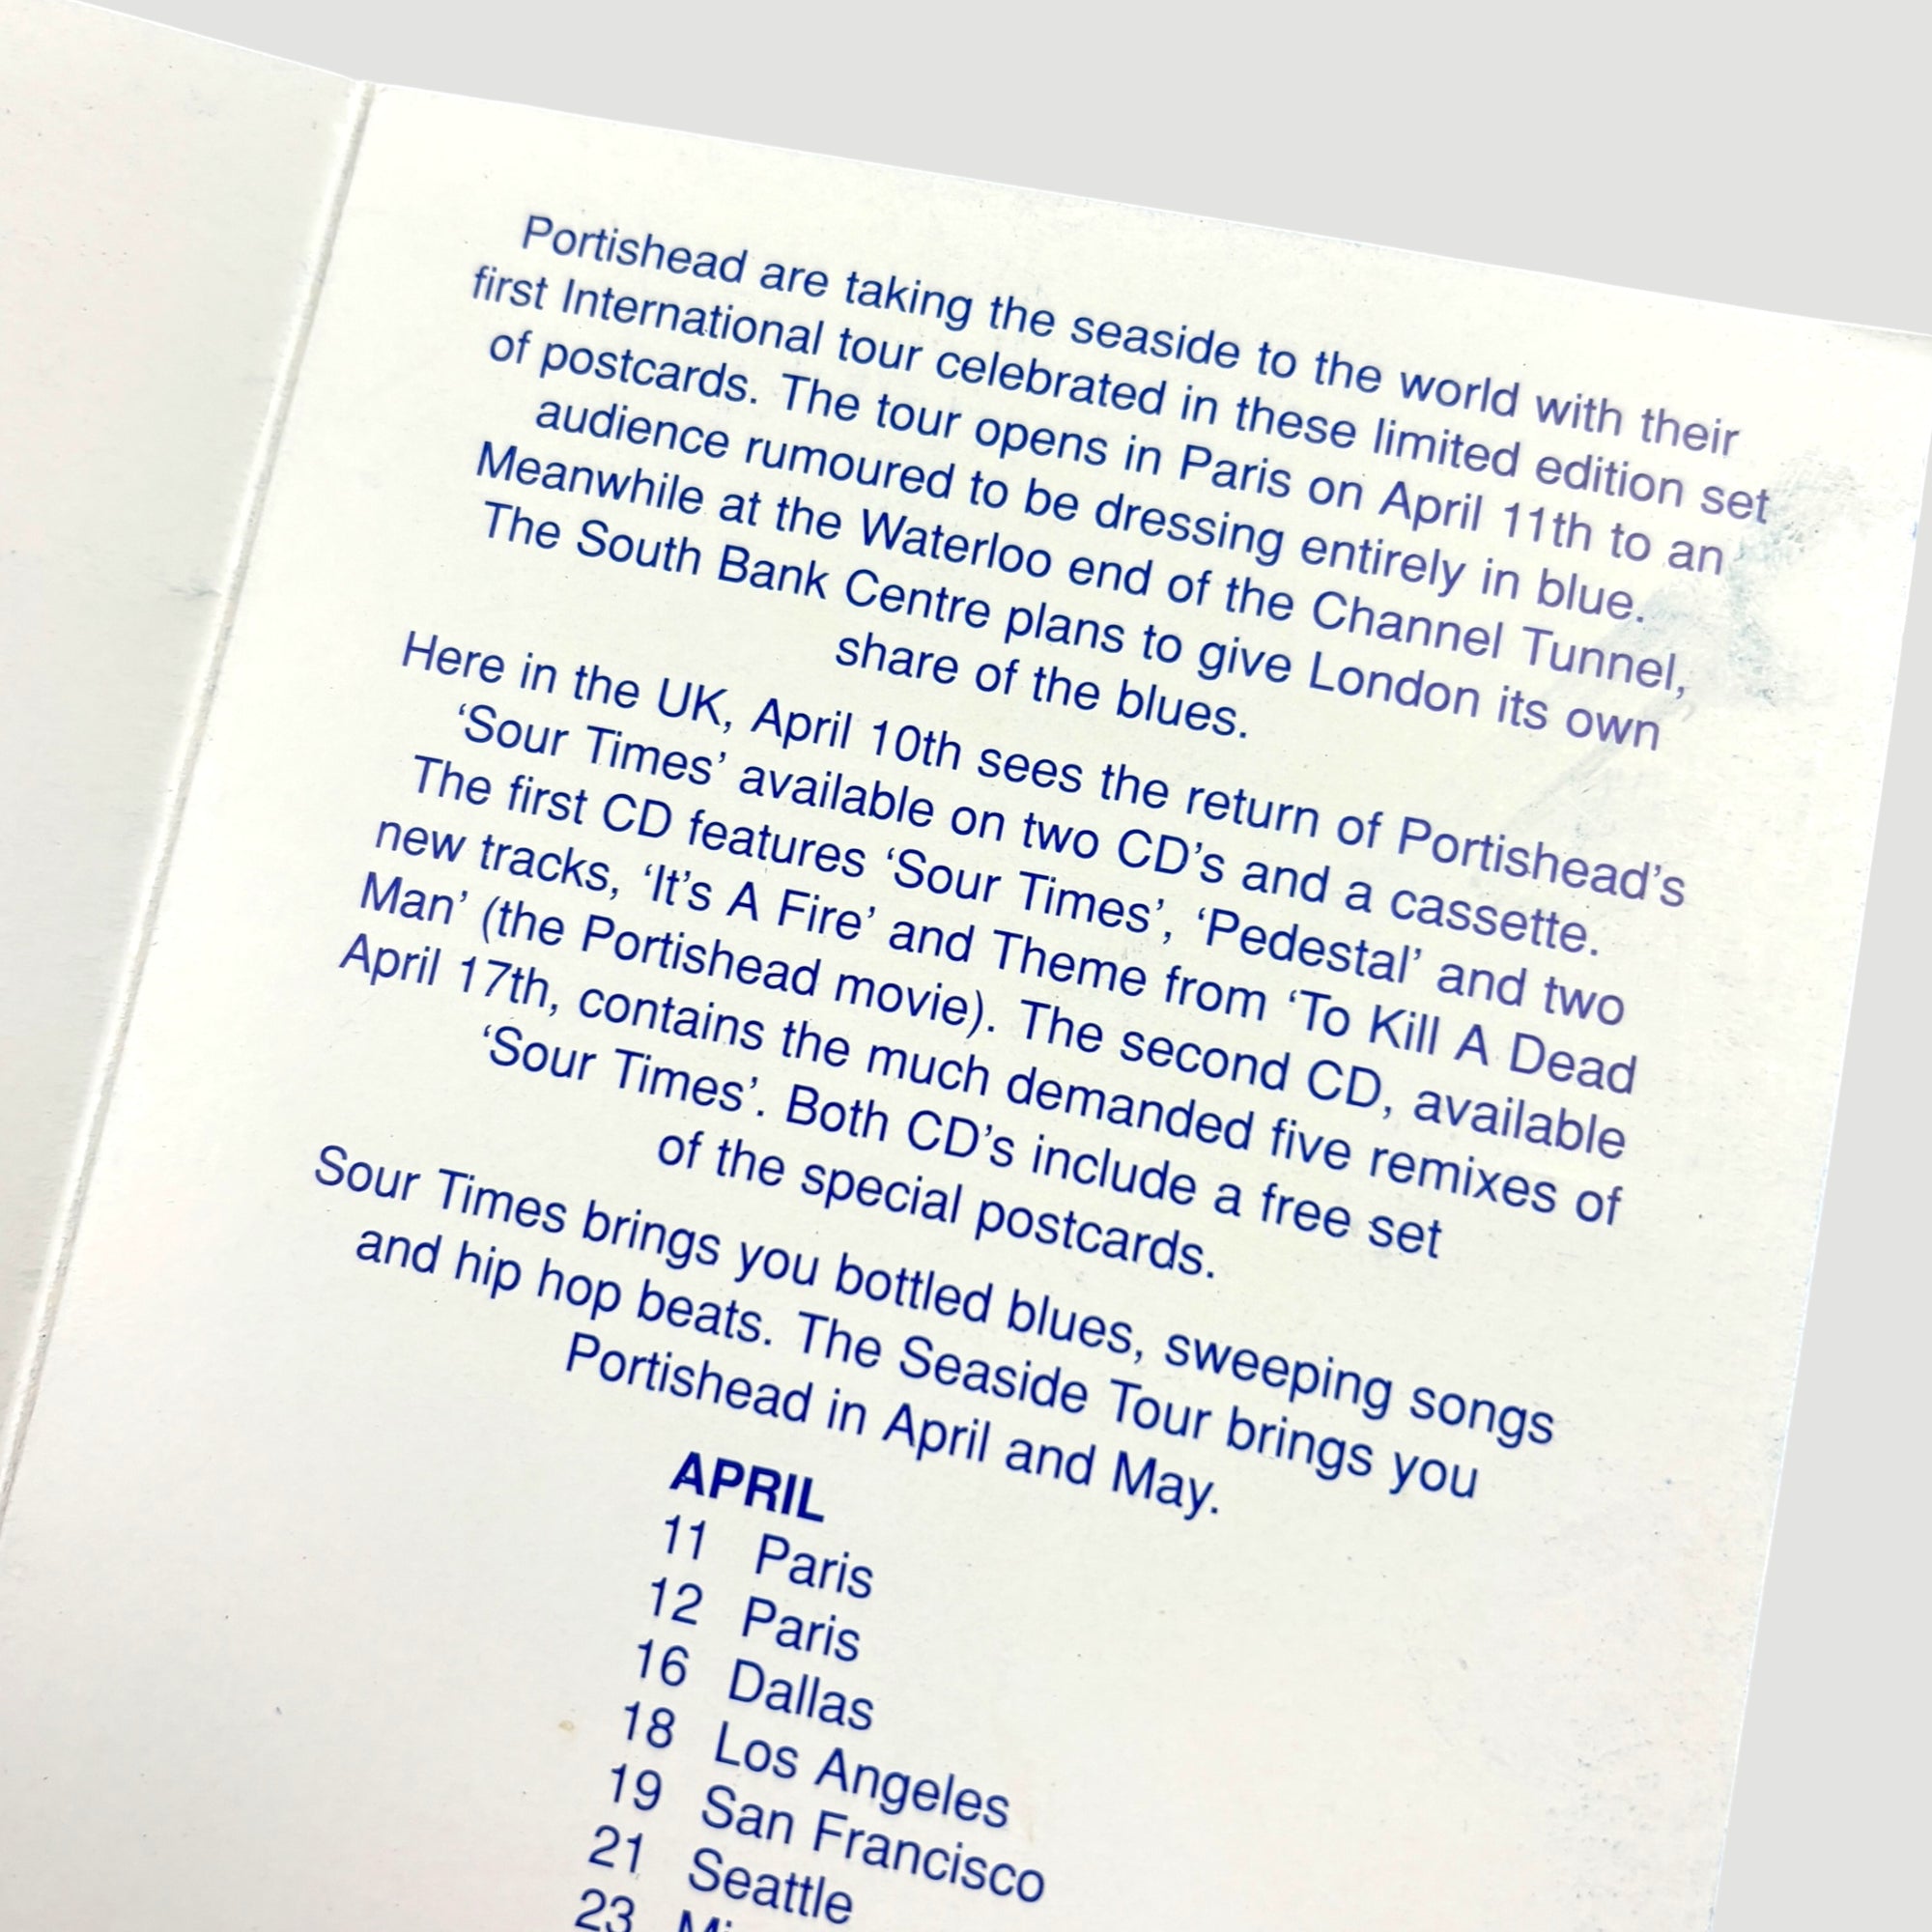 Portishead are taking the seaside to the world with their
first International tour celebrated in these limited edition set
of postcards. The tour opens in Paris on April 11th to an
audience rumoured to be dressing entirely in blue.
Meanwhile at the Waterloo end of the Channel Tunnel,
The South Bank Centre plans to give London its own
share of the blues.
Here in the UK, April 10th sees the return of Portishead’s
‘Sour Times’ available on two CD’s and a cassette.
The first CD features ‘Sour Times’, ‘Pedestal’ and two
new tracks, ‘It’s A Fire’ and Theme from ‘To Kill A Dead
Man’ (the Portishead movie). The second CD, available
April 17th, contains the much demanded five remixes of
‘Sour Times’. Both CD’s include a free set
of the special postcards.
Sour Times brings you bottled blues, sweeping songs
and hip hop beats. The Seaside Tour brings you
Portishead in April and May.
APRIL
11 Paris
12 Paris
16 Dallas
18 Los Angeles
19 San Francisco
21 Seattle
23